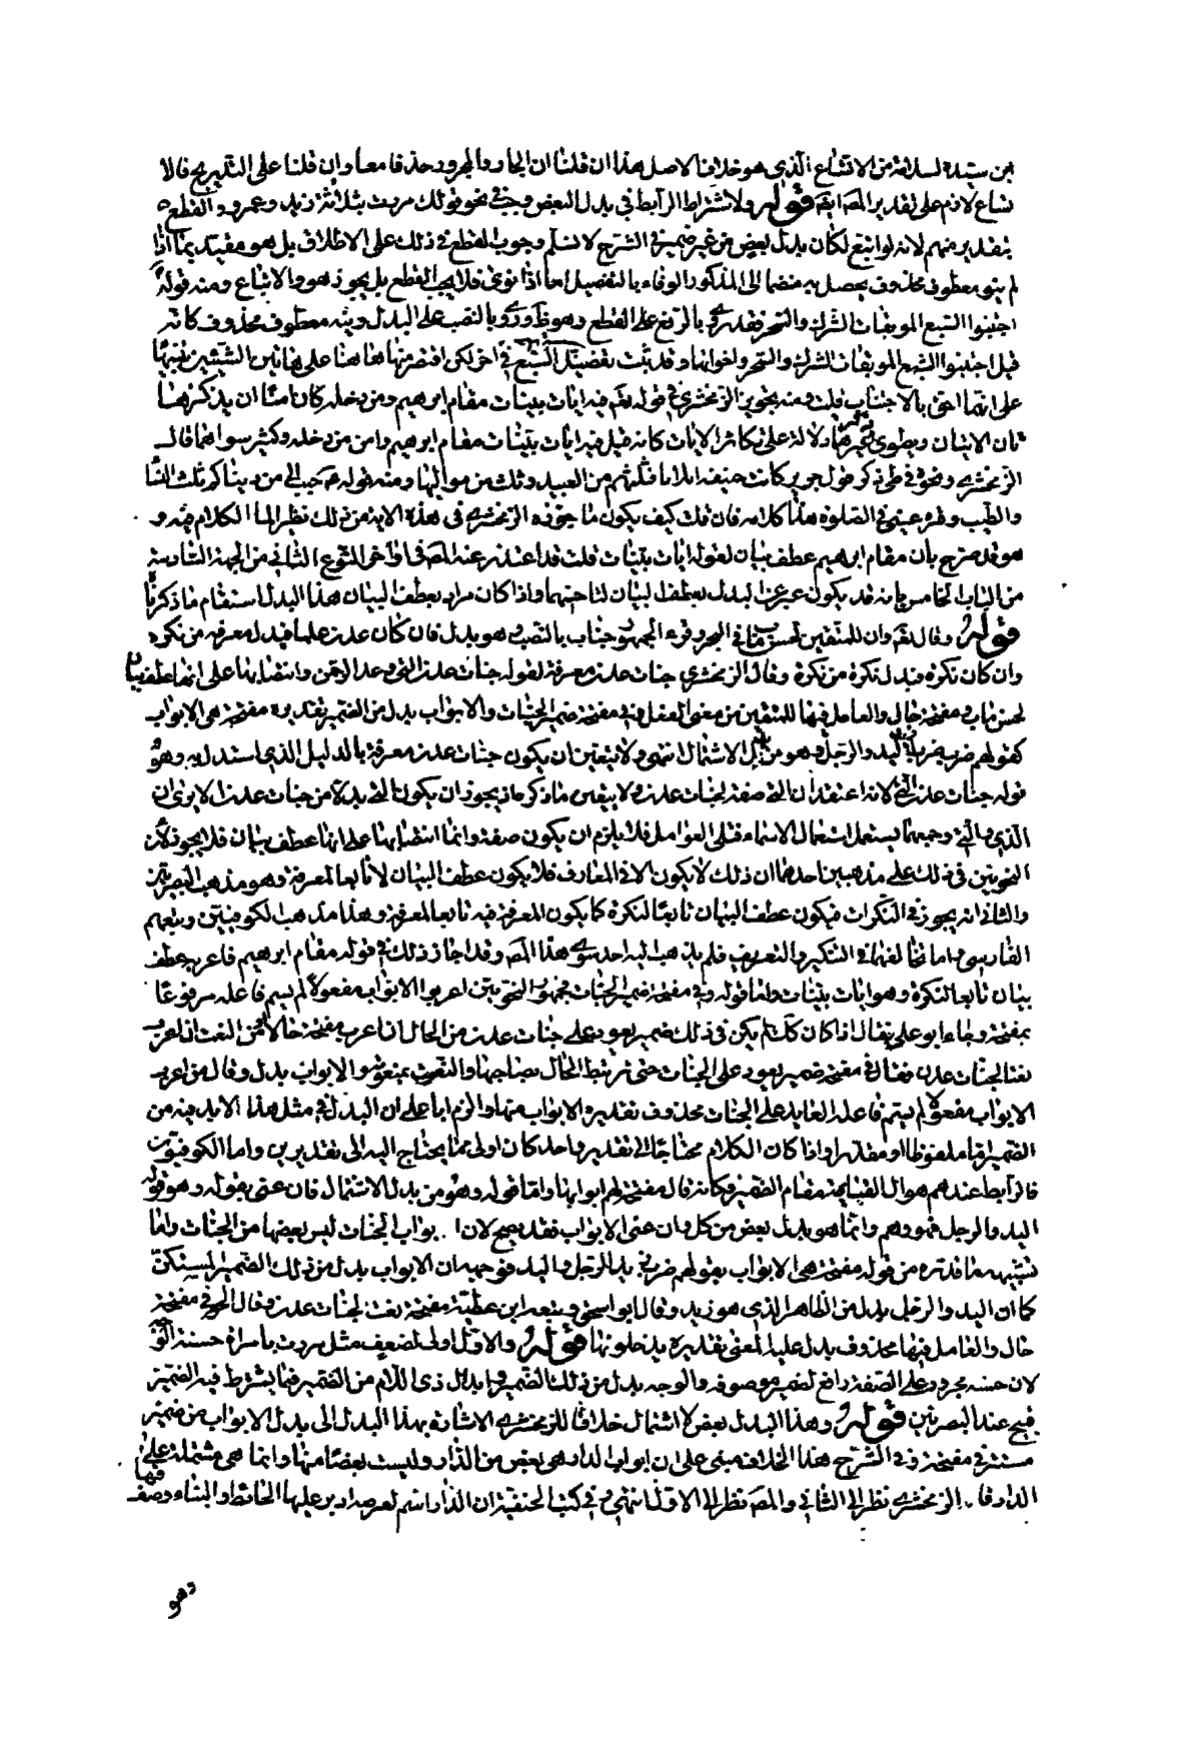 ابن سيدة لسلامته من الاتساع الذي هو خلاف الاصل هذا ان قلنا ان الجار والمجرور حذفا معا وان قلنا على التدريج فالا
تساع لازم على تقدير المص ايضا قوله ولاشتراط الرابط في بدل البعض وجب في نحو قولك مررت بثلاثة زيد وعمرو القطع
بتقدير منهم لانه لو اتبع لكان بدل بعض من غير ضمير في الشرح لا نسلم وجوب القطع في ذلك على الاطلاق بل هو مقيد بما اذا
لم ينو معطوف محذوف يحصل به منضما الى المذكور الوفاء بالتفصيل اما اذا نوى فلا يجب القطع بل يجوز هو والاتباع ومنه قوله
اجتنبوا السبع الموبقات الشرك والسحر فقد روي بالرفع على القطع وهو ظاهر وروي بالنصب على البدل وثم معطوف محذوف كانه
قيل اجتنبوا السبع الموبقات الشرك والسحر واخواتها وقد ثبت تفصيل السبع في اخر لكن اقتصر منها هاهنا على هاتين الثنتين تنبيها
على انهما احق بالاجتناب قلت ومنه تجويز الزمخشري في قوله تعالى فيه ايات بينات مقام ابرهيم ومن دخله كان امنا ان يذكر هاتا
ن الايتان ويطوى ذكر غيرهما دلالة على تكاثر الايات كانه قيل فيه ايات بينات مقام ابرهيم وامن من دخله وكثير سواهما قال
الزمخشري ونحوه في طي ذكر قول جرير كانت حنيفة اثلاثا فثلثهم من العبيد وثلث من مواليها ومنه قوله عم حبب الي من دنياكم ثلث النسا
والطيب وقرة عيني في الصلوة هذا كلامه فان قلت كيف يكون ما جوزه الزمخشري في هذه الاية من ذلك نظير لما الكلام فيه و
هو قد صرح بان مقام ابرهيم عطف بيان لقوله ايات بينات قلت قد اعتذر عنه المص في اواخر النوع الثاني من الجهة السادسة
من الباب الخامس بانه قد يكون عبر عن البدل بعطف البيان لتاخيهما واذا كان مراده بعطف البيان هذا البدل استقام ما ذكرنا
قوله وقال تعالى وان للمتقين لحسن مآب في البحر وقرء الجمهور جنات بالنصب وهو بدل فان كان عدن علما فبدل معرفة من نكرة
وان كان نكرة فبدل نكرة من نكرة وقال الزمخشري جنات عدن معرفة لقوله جنات عدن التي وعد الرحمن وانتصابها على انها عطف بيا
لحسن مآب ومفتحة حال والعامل فيها للمتقين من معنى الفعل وفي مفتحة ضمير الجنات والابواب بدل من الضمير تقديره مفتحة هي الابواب
كقولهم ضرب زيد اليد والرجل وهو من بدل الاشتمال انتهى ولا يتعين ان يكون جنات عدن معرفة بالدليل الذي استدل به وهو
قوله جنات عدن التي لانه اعتقد ان التي صفة لجنات عدن ولا يتعين ما ذكره اذ يجوز ان يكون التي بدلا من جنات عدن الا ترى ان
الذي والتي وجمعهما يستعمل استعمال الاسماء فتلى العوامل فلا يلزم ان يكون صفة وانما انتصابها على انها عطف بيان فلا يجوز لان
النحويين في ذلك على مذهبين احدهما ان ذلك لا يكون الا في المعارف فلا يكون عطف البيان الا تابعا لمعرفة وهو مذهب البصريين
والثاني انه يجوز في النكرات فيكون عطف البيان تابعا لنكرة كما يكون المعرفة فيه تابعا لمعرفة وهذا مذهب الكوفيين وتبعهم
الفارسي واما تخالفهما في التنكير والتعريف فلم يذهب اليه احد سوى هذا المص وقد اجاز ذلك في قوله مقام ابرهيم فاعربه عطف
بيان تابعا لنكرة وهو ايات بينات واما قوله وفي مفتحة ضمير الجنات فجمهور النحويين اعربوا الابواب مفعولا لم يسم فاعله مرفوعا
بمفتحة وجاء ابو علي فقال اذا كان كذلك لم يكن في ذلك ضمير يعود على جنات عدن من الحال ان اعرب مفتحة حالا او من النعت ان اعرب
نعتا لجنات عدن فقال في مفتحة ضمير يعود على الجنات حتى ترتبط الحال بصاحبها والنعت بمنعوته والابواب بدل وقال من اعرب
الابواب مفعولا لم يسم فاعله العايد على الجنات محذوف تقديره الابواب منها والزم ابا علي ان البدل في مثل هذا لابد فيه من
الضمير اما ملفوظا او مقدرا واذا كان الكلام محتاجا الى تقدير واحد كان اولى مما يحتاج اليه الى تقديرين واما الكوفيون
فالرابط عندهم هو ال القيامه مقام الضمير فكانه قال مفتحة لهم ابوابها واما قوله وهو من بدل الاشتمال فان عنى بقوله وهو قوله
اليد والرجل فهو وهم وانما هو بدل بعض من كل وان عنى الابواب فقد يصح لان ابواب الجنات ليس بعضها من الجنات واما
تشبيهه ما قدره من قوله مفتحة هي الابواب بقولهم ضرب زيد الرجل واليد فوجهه ان الابواب بدل من ذلك الضمير المستكن
كما ان اليد والرجل بدل من الظاهر الذي هو زيد وقال ابو اسحق وتبعه ابن عطية مفتحة نعت لجنات عدن وقال الحوفي مفتحة
حال والعامل فيها محذوف يدل عليه المعنى تقديره يدخلونها قوله والاول اولى لضعف مثل مررت بامراة حسنة الوجه
لان حسنه مجرد وعلى الصفة رافع لضمير موصوفه والوجه بدل من ذلك الضمير وابدال ذى اللام من الضمير فيما يشترط فيه الضمير
قبيح عند البصريين قوله وهذا البدل بعض لا اشتمال خلافا للزمخشري الاشارة بهذا البدل الى بدل الابواب من ضمير
مستتر في مفتحة وفي الشرح هذا الخلاف مبني على ان ابواب الدار هي بعض من الدار وليست بعضا منها وانما هي مشتملة عليها
الدار فا الزمخشري نظر الى الثاني والمص نظر الى الاول انتهى وفي كتب الحنفية ان الدار اسم لعرصة ادير عليها الحائط والبناء وصف فيها
وهو